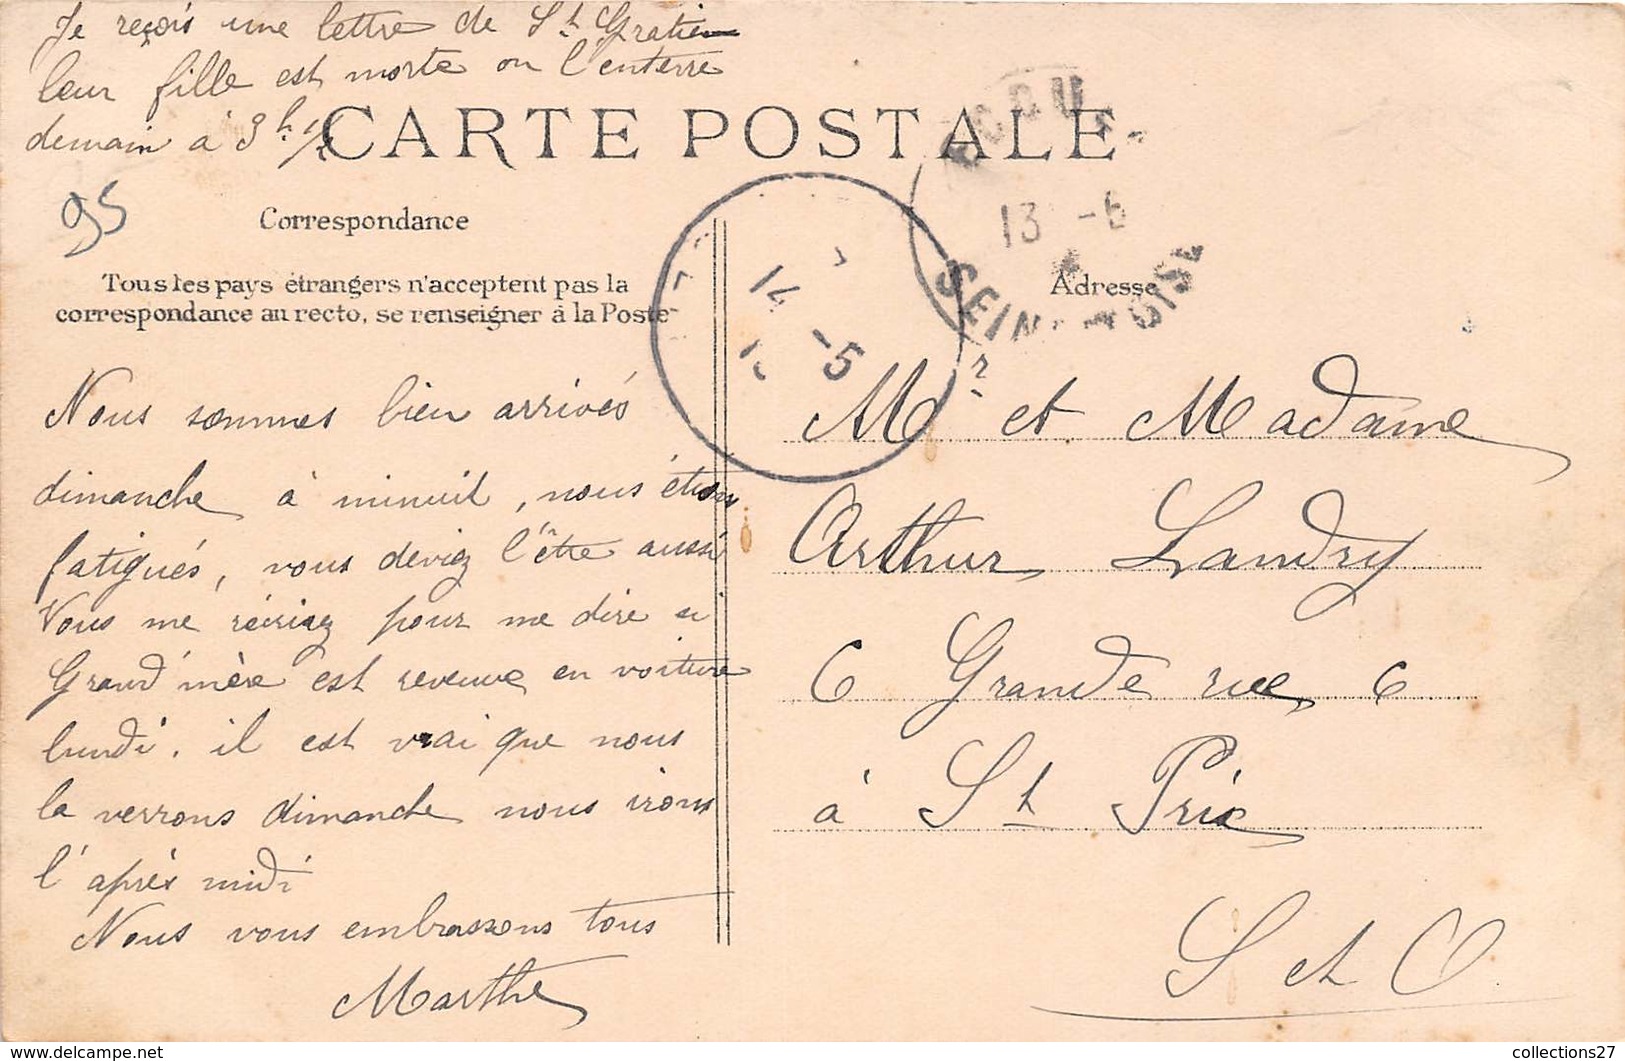 Je reçois une lettre de St Gratien
leur fille est morte on l'enterre
demain à 3h 1/2
CARTE POSTALE
95
Correspondance
Tous les pays étrangers n'acceptent pas la
correspondance au recto, se renseigner à la Poste
Nous sommes bien arrivés
dimanche à minuit, nous étions
fatigués, vous deviez l'être aussi
Vous me écrirez pour me dire si
Grand'mère est revenue en voiture
lundi. il est vrai que nous
la verrons dimanche nous irons
l'après midi
Nous vous embrassons tous
Marthe
14 -5
13 -6
SEINE
OISE
Adresse
Mr et Madame
Arthur Landry
6 Grande rue 6
à St Prix
S et O
collections27